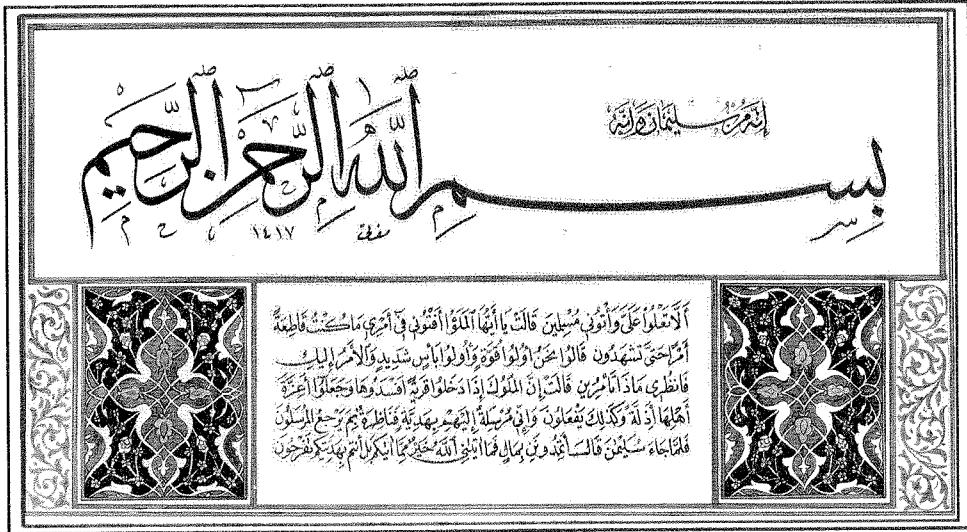 إِنَّهُ مِنْ سُلَيْمَانَ وَإِنَّهُ
بِسْمِ ٱللَّهِ ٱلرَّحْمَٰنِ ٱلرَّحِيمِ
١٤١٧
أَلَّا تَعْلُوا عَلَيَّ وَأْتُونِي مُسْلِمِينَ قَالَتْ يَا أَيُّهَا الْمَلَؤُا أَفْتُونِي فِي أَمْرِي مَا كُنْتُ قَاطِعَةً
أَمْرًا حَتَّى تَشْهَدُونِ قَالُوا نَحْنُ أُولُوا قُوَّةٍ وَأُولُوا بَأْسٍ شَدِيدٍ وَالْأَمْرُ إِلَيْكِ
فَانْظُرِي مَاذَا تَأْمُرِينَ قَالَتْ إِنَّ الْمُلُوكَ إِذَا دَخَلُوا قَرْيَةً أَفْسَدُوهَا وَجَعَلُوا أَعِزَّةَ
أَهْلِهَا أَذِلَّةً وَكَذَلِكَ يَفْعَلُونَ وَإِنِّي مُرْسِلَةٌ إِلَيْهِمْ بِهَدِيَّةٍ فَنَاظِرَةٌ بِمَ يَرْجِعُ الْمُرْسَلُونَ
فَلَمَّا جَاءَ سُلَيْمٰنَ قَالَ أَتُمِدُّونَنِ بِمَالٍ فَمَا آتَانِيَ اللَّهُ خَيْرٌ مِمَّا آتَاكُمْ بَلْ أَنْتُمْ بِهَدِيَّتِكُمْ تَفْرَحُونَ